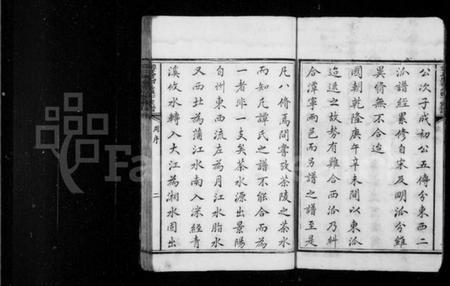 公次子成初公五傳分東西二
派譜經累修自宋及明派分雖
異脩無不合迨
國朝乾隆庚午辛未間以東派
迨遠之故勢有難合西派乃糾
合潭寧兩邑而另譜之譜至是
凡八脩焉間嘗攷茶陵之茶水
而知凡譚氏之譜不能合而為
一者非一支矣茶水源出景陽
自州東西流左為月江水脂水
又西北為蒲江水南入深經青
溪攸水轉入大江為湘水固出
序
二